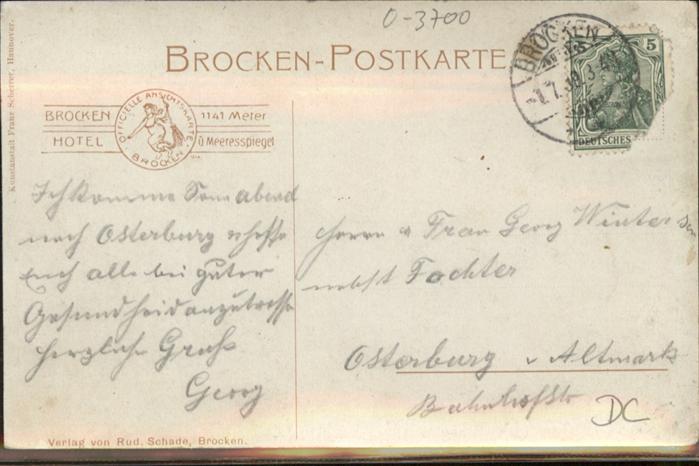 O-3700
BROCKEN-POSTKARTE
BROCKEN
HOTEL
OFFICIELLE ANSICHTSKARTE
BROCKEN
1141 Meter
ü Meeresspiegel
BROCKEN
5
DEUTSCHES
Kunstanstalt Franz Scherrer, Hannover.
Ich komme Sonnabend
nach Osterburg u hoffe
Euch alle bei guter
Gesundheid anzutreffe
herzliche Gruß
Georg
Herrn u Frau Georg Winter
nebst Tochter
Osterburg v Altmark
Bahnhofstr
DC
Verlag von Rud. Schade, Brocken.